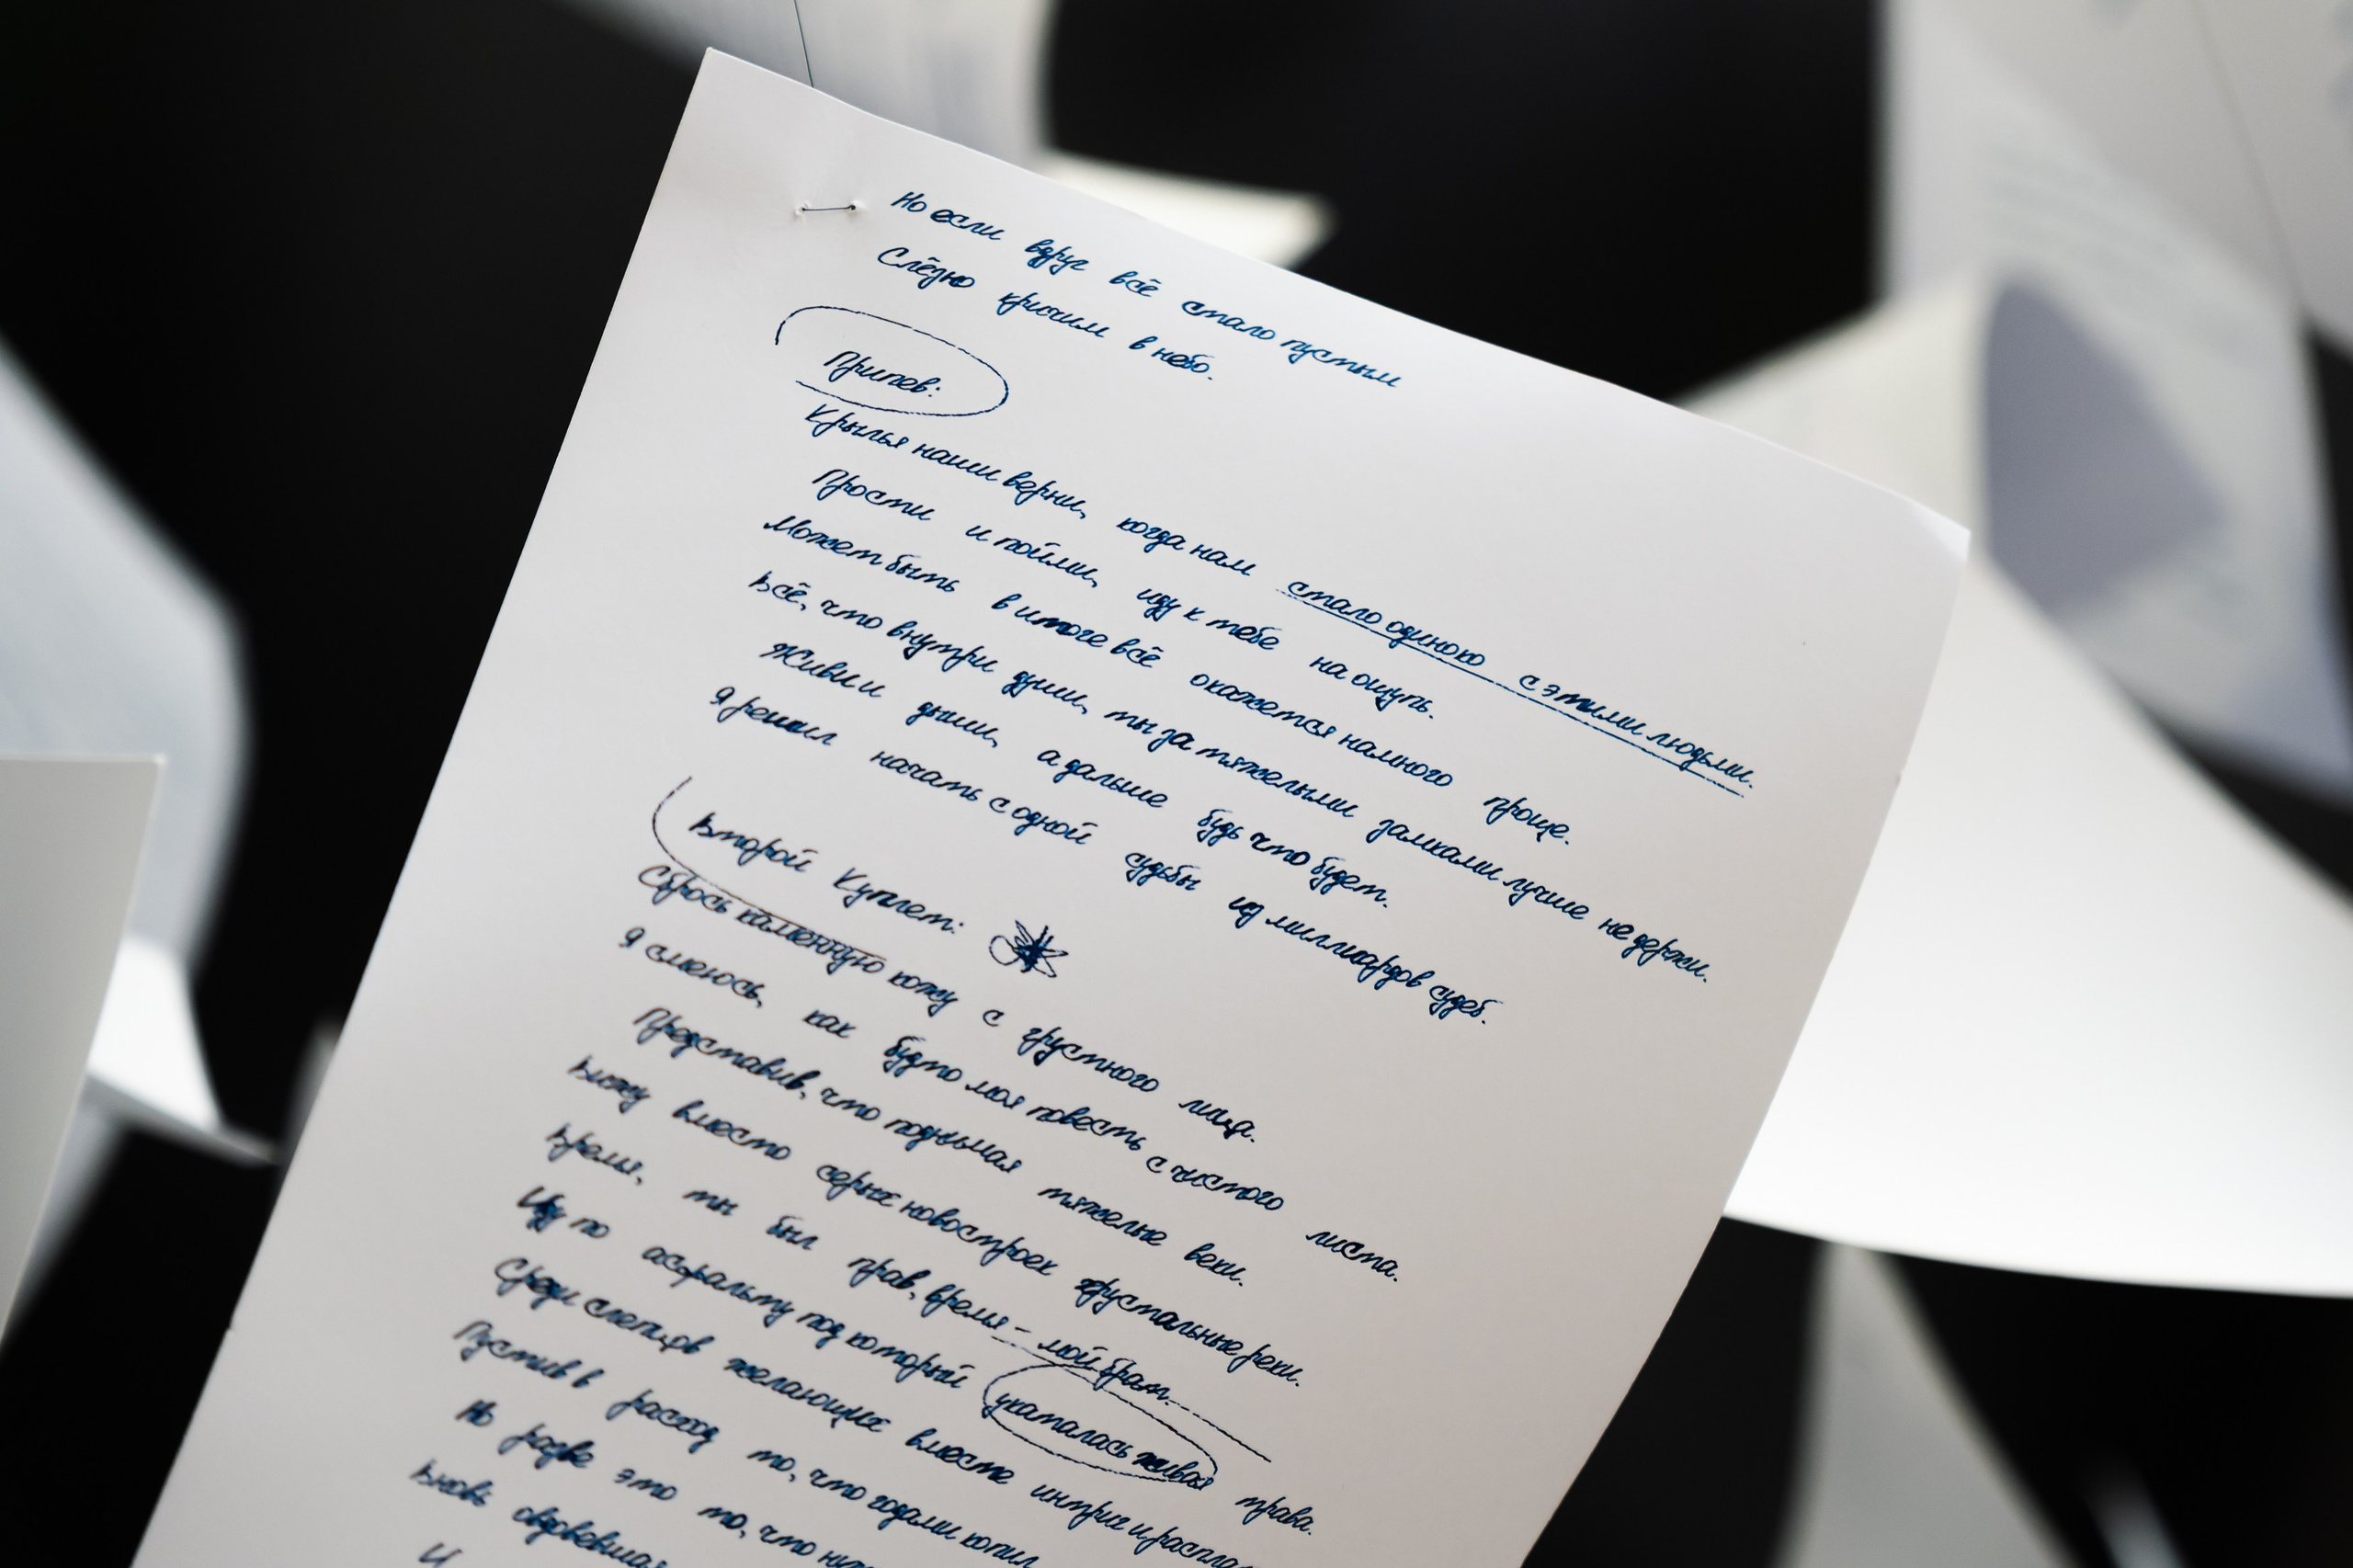 Но если вдруг всё стало пустым
Слёзно кричим в небо.
Припев:
Крылья наши верни, когда нам стало одиноко с этими людьми.
Прости и пойми, иду к тебе на ощупь.
Может быть в итоге всё окажется намного проще.
Всё, что внутри души, ты за тяжелыми замками лучше не держи.
Живи и дыши, а дальше будь что будет.
Я решил начать с одной судьбы из миллиардов судеб.
Второй Куплет:
Сбрось каменную кожу с грустного лица.
Я смеюсь, как будто моя повесть с чистого листа.
Представив, что поднимая тяжелые веки.
Вижу вместо серых новостроек хрустальные реки.
Время, ты был прав, время - мой брат.
Иду по асфальту под который укаталась живая трава.
Среди слепцов желающих вместе интриг и распла
Пустив в расход то, что годами копил
Но разве это то, что нуж
Вновь овдовевшая
И